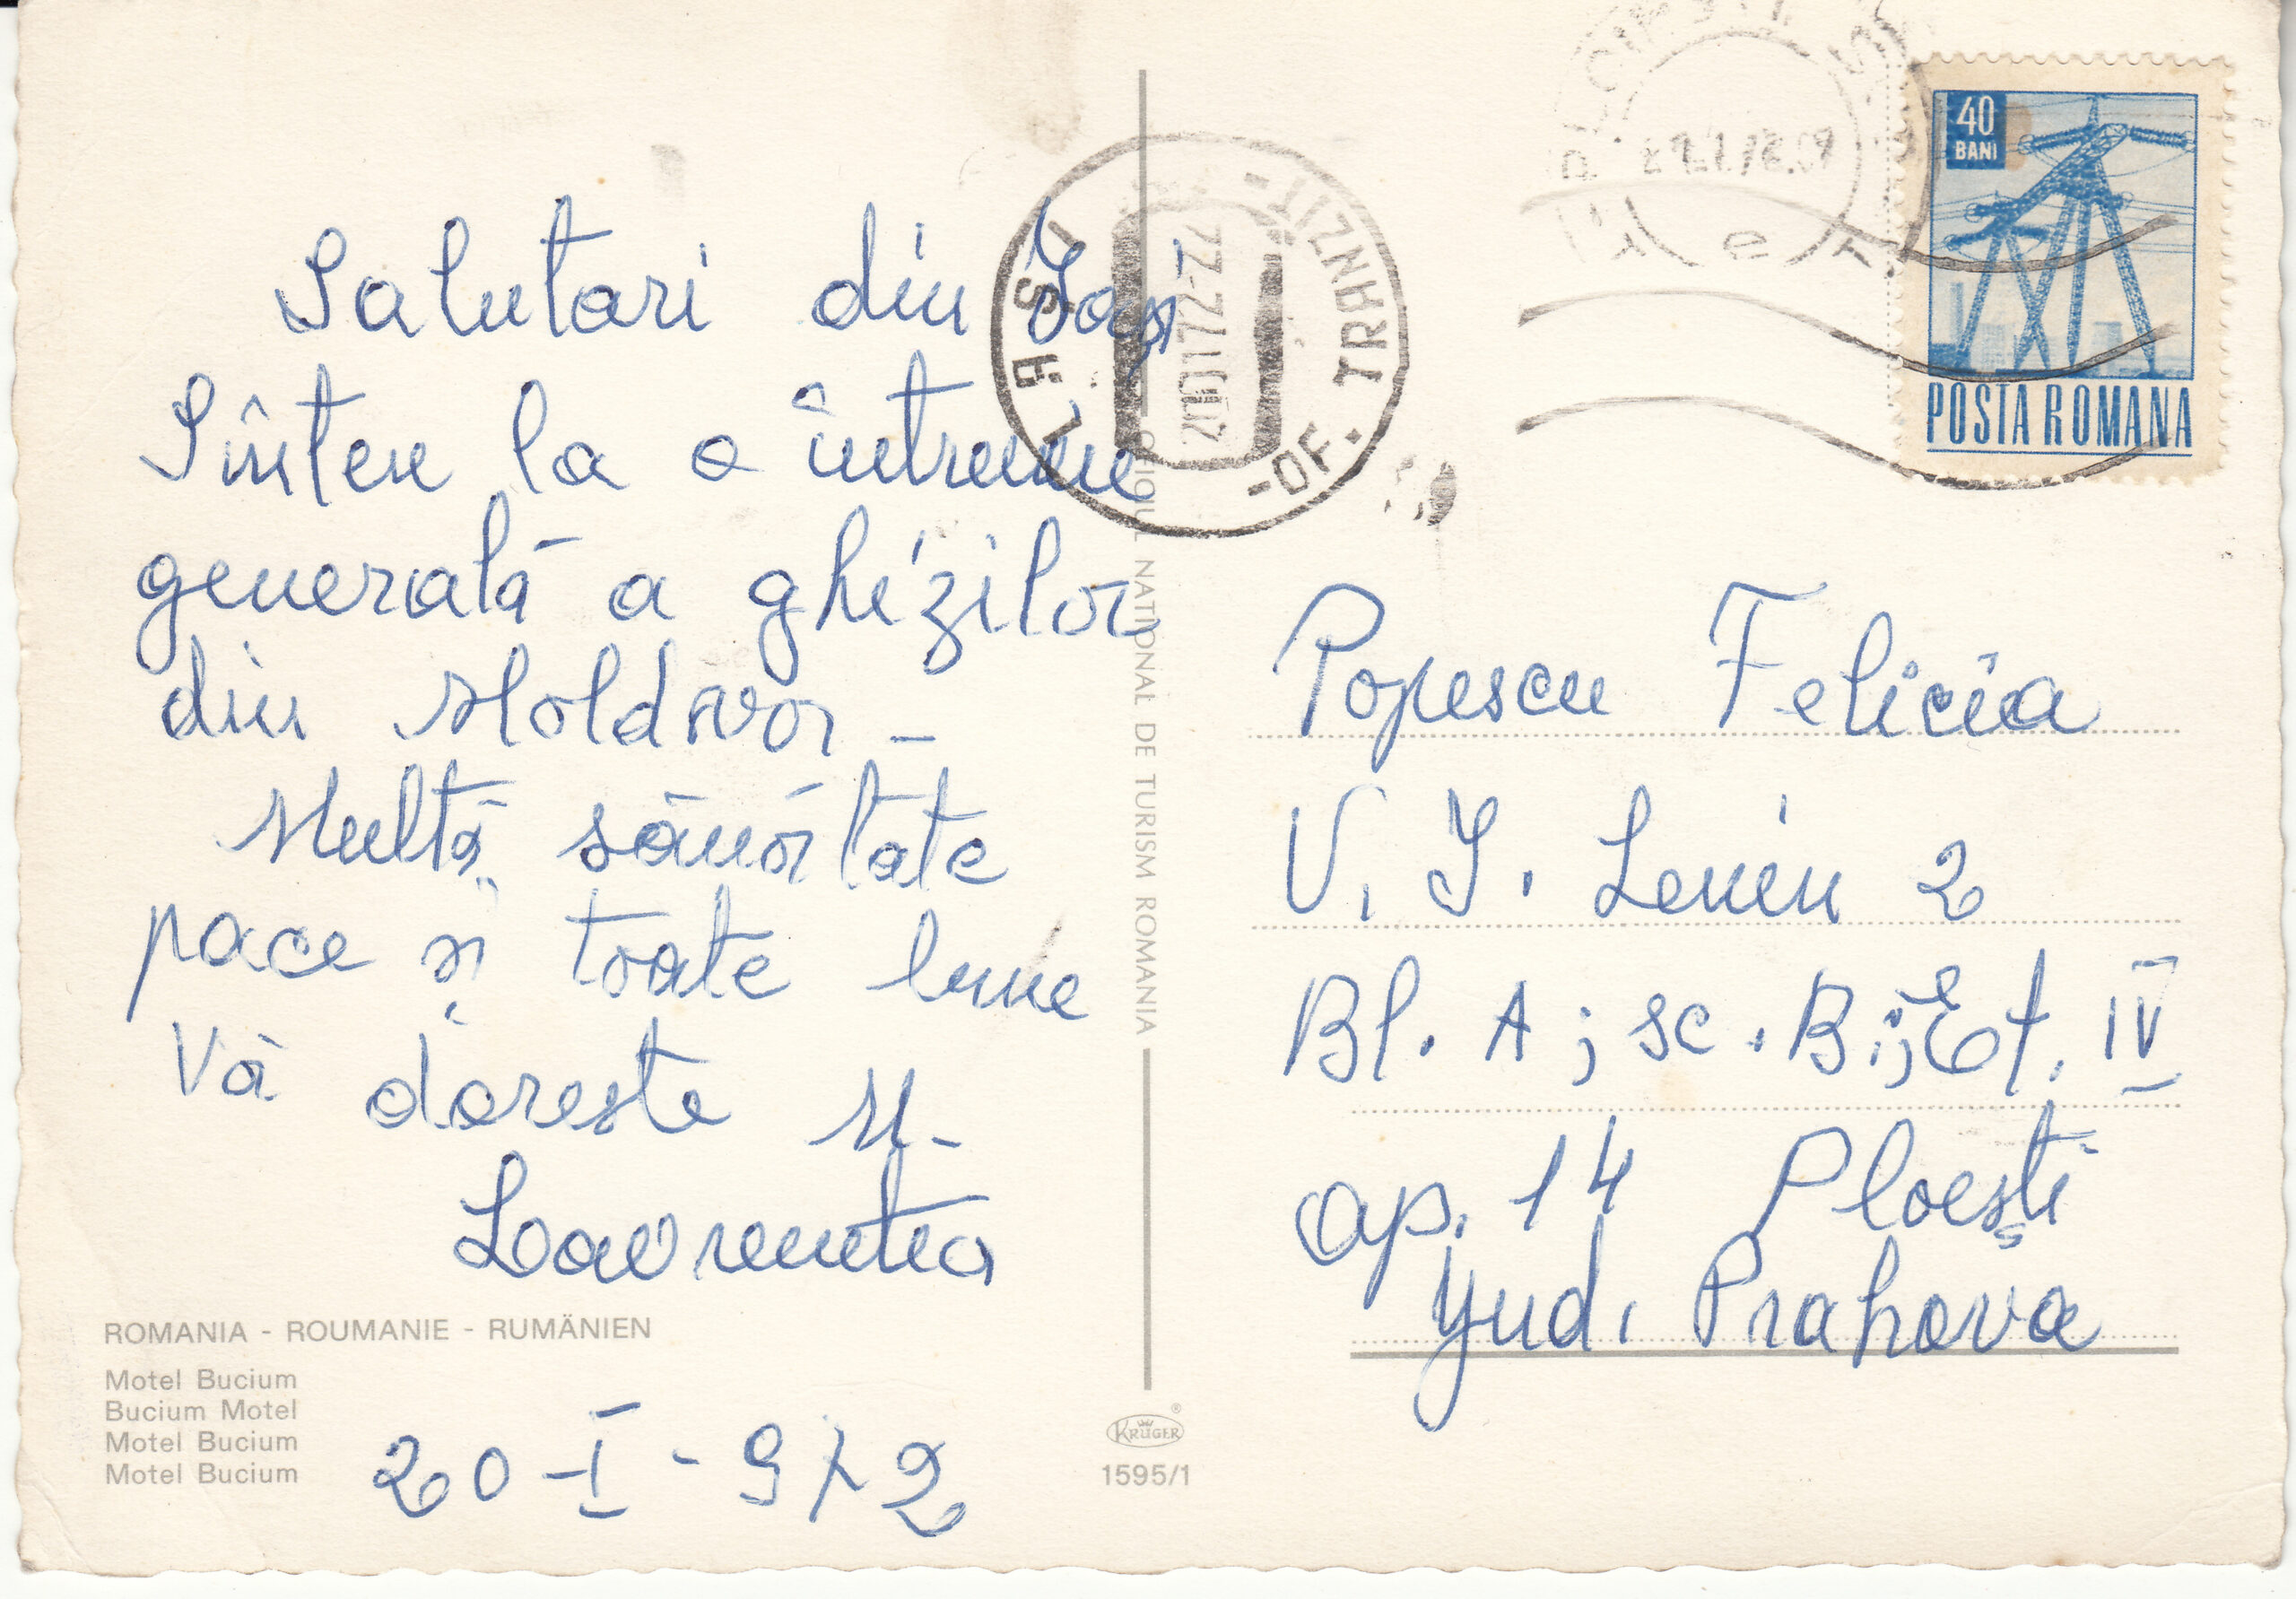 Salutari din Iași
Sîntem la o întrunire
generală a ghizilor
din Moldova -
Multă sănătate
pace și toate bune
Vă dorește M-
Lavrentia
ROMANIA - ROUMANIE - RUMÄNIEN
Motel Bucium
Bucium Motel
Motel Bucium
Motel Bucium
20 - I - 972
OFICIUL NATIONAL DE TURISM ROMANIA
KRÜGER
1595/1
IASI
-OF. TRANZIT-
40
BANI
POSTA ROMANA
Popescu Felicia
V. I. Lenin 2
Bl. A ; sc. B ; Et. IV
ap. 14 Ploești
Jud. Prahova